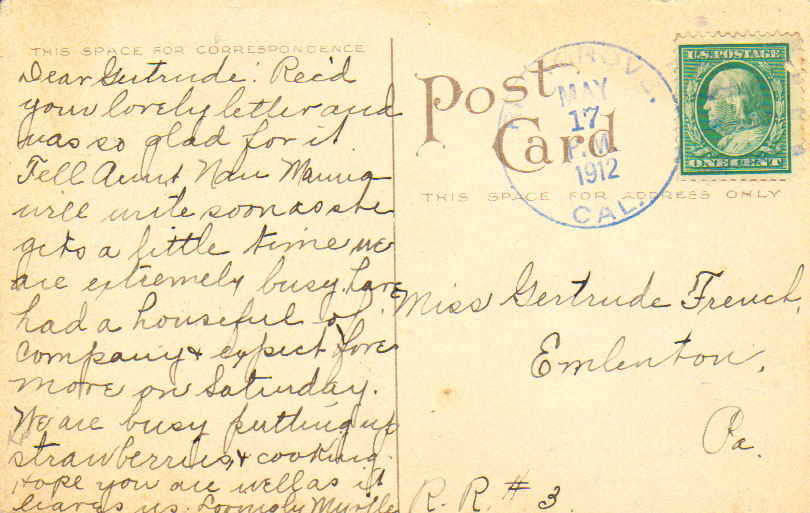 THIS SPACE FOR CORRESPONDENCE
Dear Gertrude: Rec'd
your lovely letter and
was so glad for it.
Tell Aunt Nan Mama
will write soon as she
gets a little time we
are extremely busy have
had a houseful of
company & expect
more on Saturday.
We are busy putting up
strawberries, & cooking.
Hope you are well as it
leaves us. Lovingly Myrtle
Post
Card
GROVE,
MAY
17
P.M.
1912
CAL.
U.S. POSTAGE
ONE CENT
THIS SPACE FOR ADDRESS ONLY
Miss Gertrude French,
Emlenton,
Pa.
R. R. # 3.